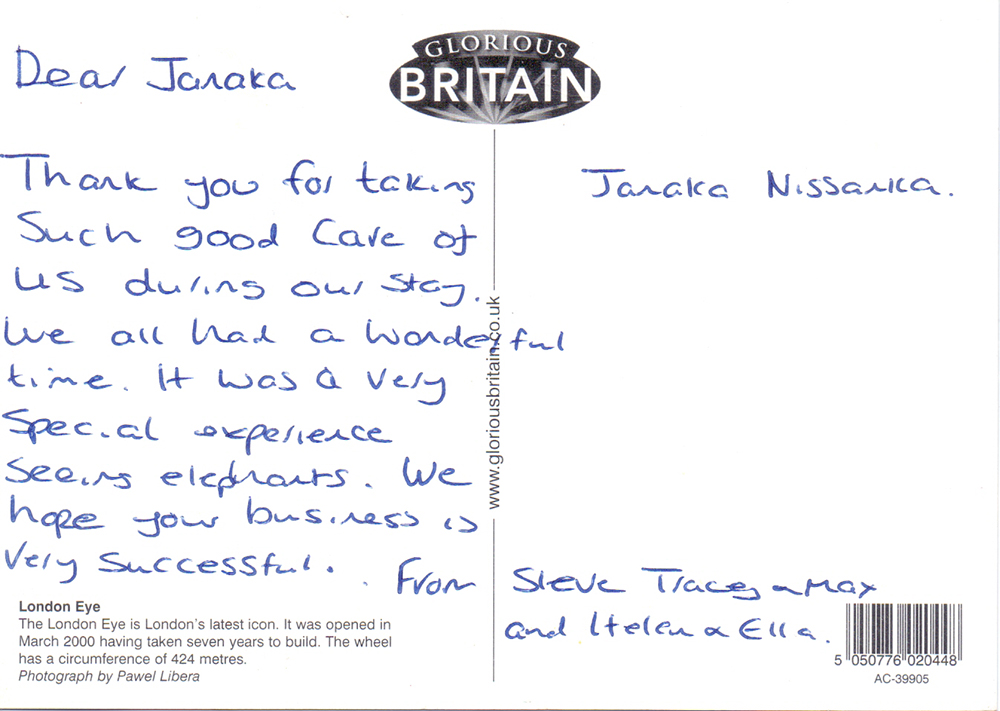 GLORIOUS
BRITAIN
Dear Janaka
Thank you for taking
Such good Care of
us during our stay.
We all had a wonderful
time. It was a very
Special experience
Seeing elephants. We
hope your business is
Very Successful.
From Steve Tracey & Max
and Helen & Ella.
Janaka Nissanka.
www.gloriousbritain.co.uk
London Eye
The London Eye is London's latest icon. It was opened in
March 2000 having taken seven years to build. The wheel
has a circumference of 424 metres.
Photograph by Pawel Libera
5 050776 020448
AC-39905